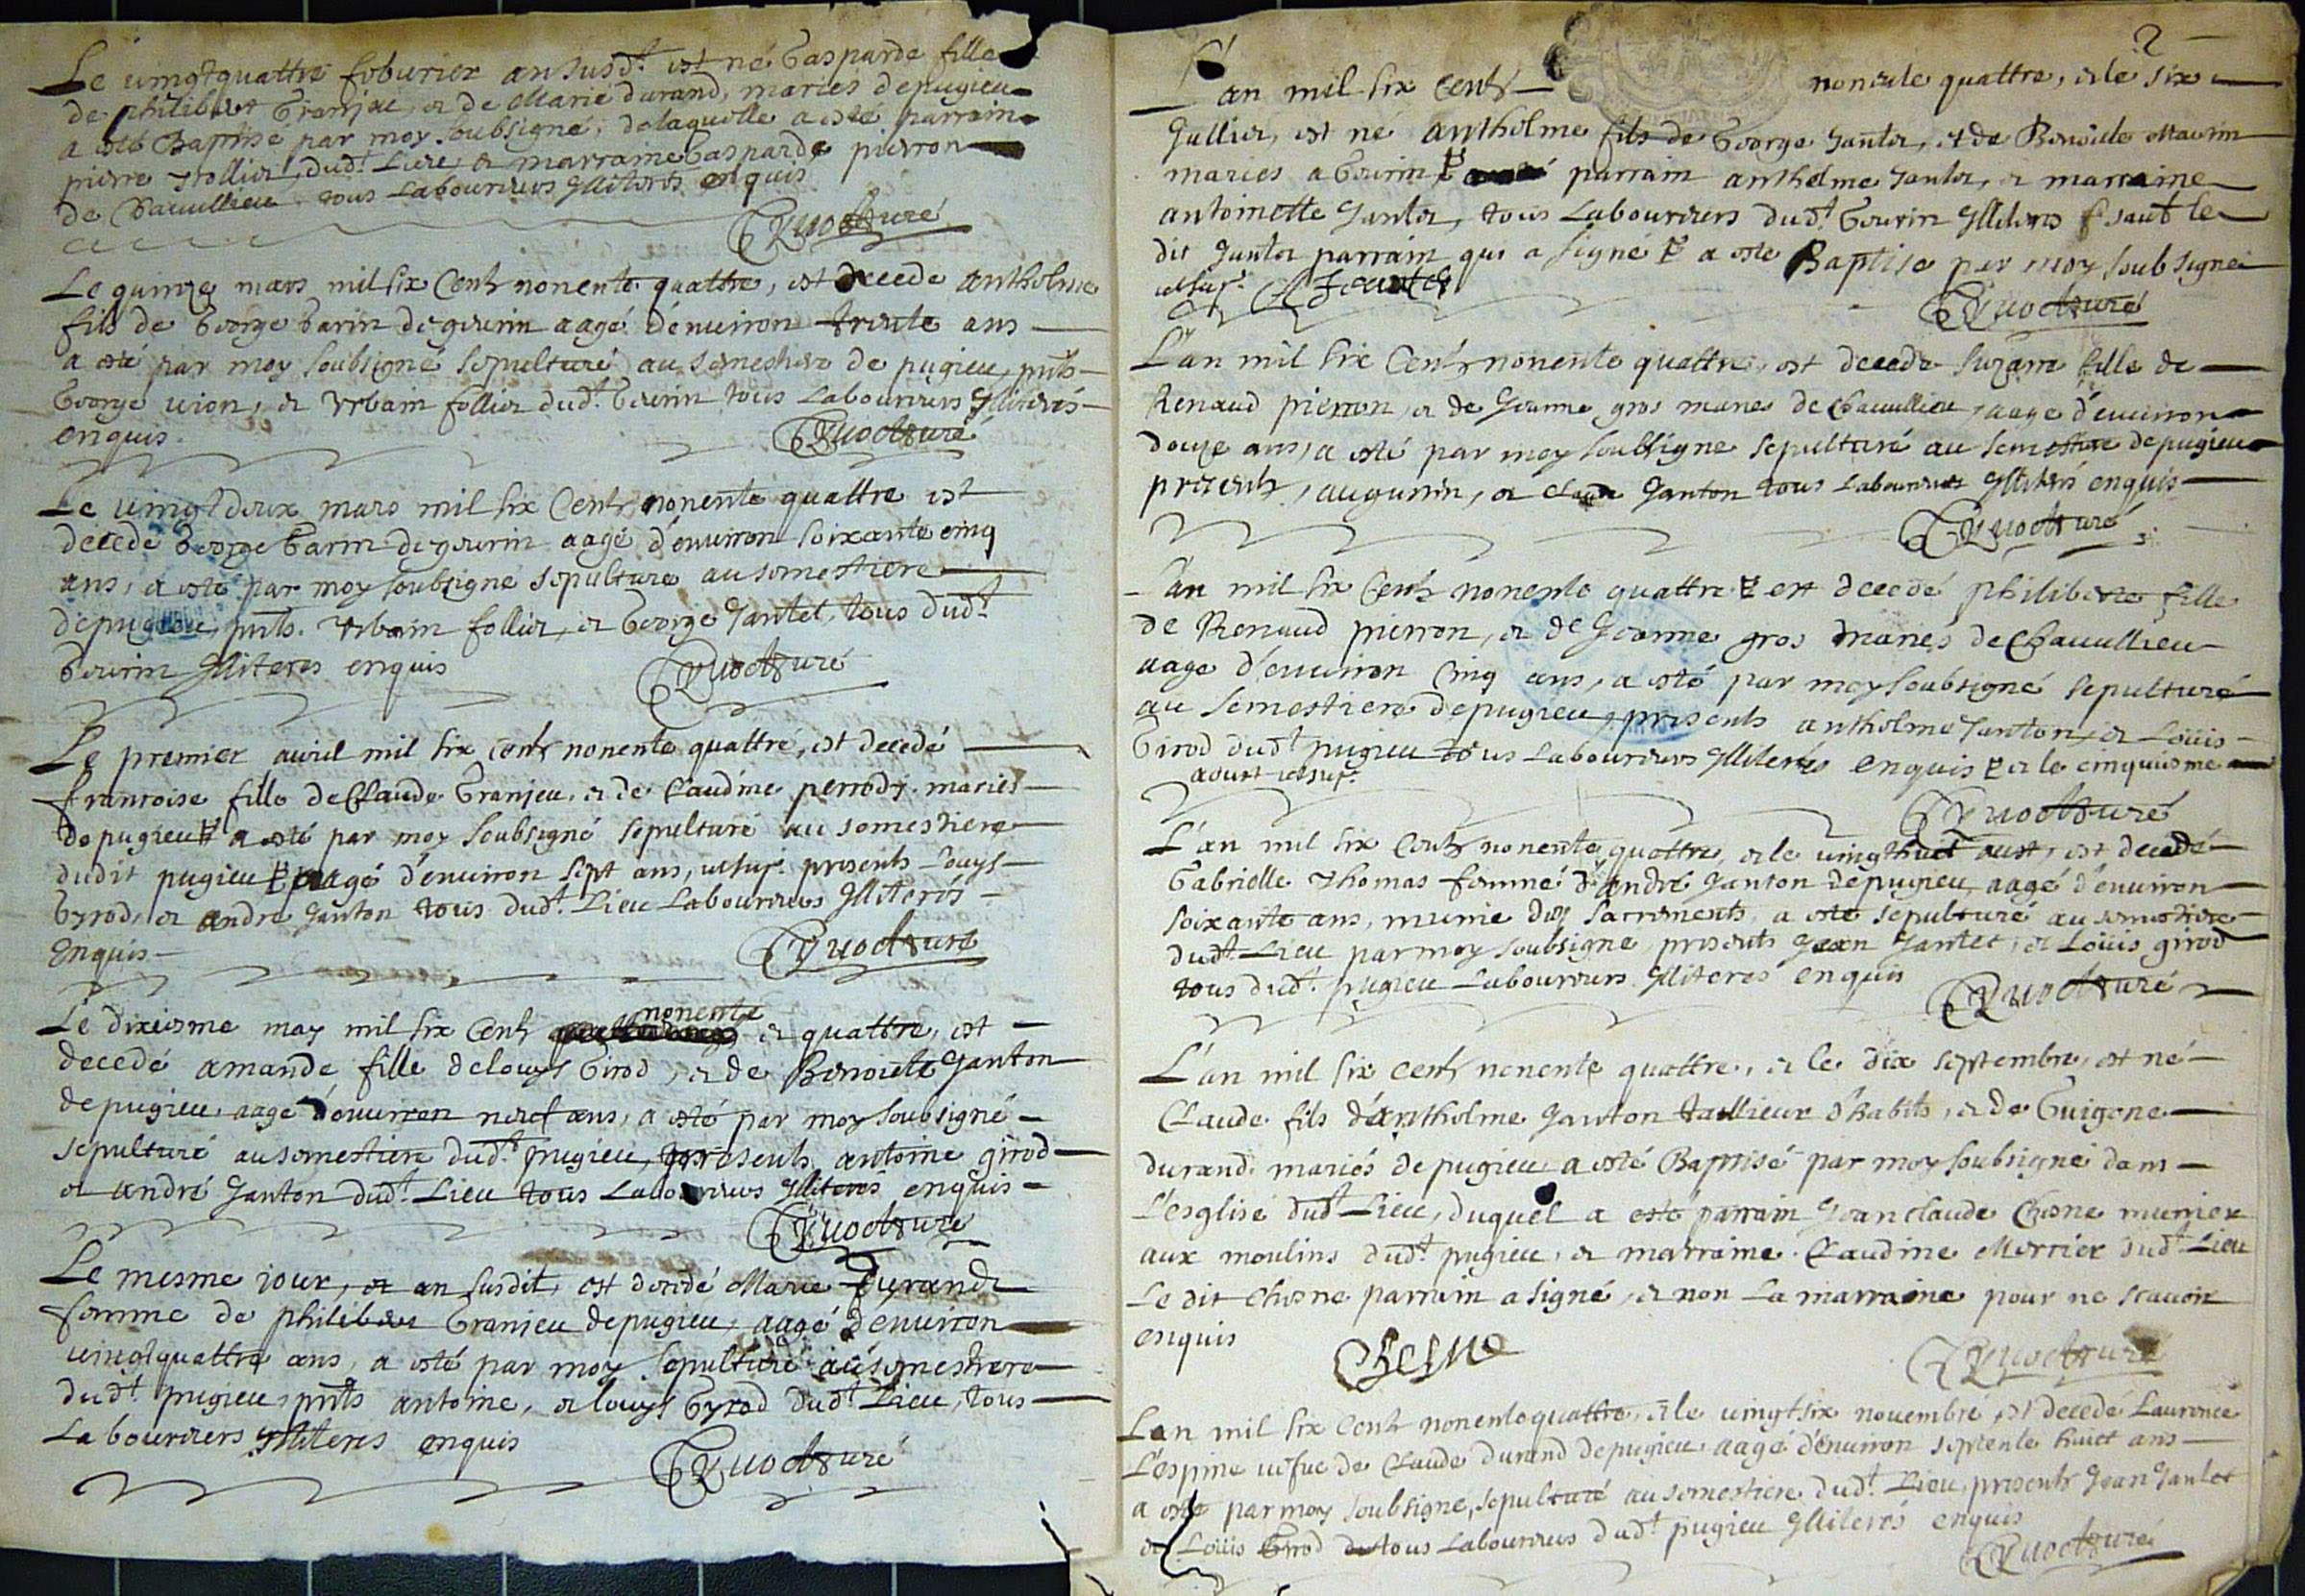 Le vingtquattre feburier an susdt. est né Gasparde fille
de philibert Granjeu, et de Marie durand, mariés de pugieu
a esté Baptisé par moy soubsigné, de laquelle a esté parrain
pierre follier, dudt. Lieu, et marraine Gasparde pierron
de Chavullieu, tous Laboureurs Illiterés enquis
Quoct curé
Le quinze mars mil six Cents nonente quattre, est decede antholme
fils de George Garin de gevrin aagé d'environ trente ans
a esté par moy soubsigné sepulturé au semestiere de pugieu, pnts
George vion, et Vrbain follier dudt. Gevrin tous Laboureurs Illiterés
enquis.
Quoct curé
Le vingt deux mars mil six Cents nonente quattre est
decede George Garin de gevrin aagé d'environ soixante cinq
ans, a esté par moy soubsigné sepulturé au semestiere
de pugieu, pnts. Vrbain follier, et George Jantet, tous dudt
Gevrin Illiteres enquis
Quoct curé
Le premier avril mil six Cents nonente quattre, est decedé
francoise fille de Claude Granjeu, et de Claudine perrody mariés
de pugieu a esté par moy soubsigné sepulturé au semestiere
dudit pugieu aagé d'environ sept ans, utsup. presents Louys
Gyrod, et andré Janton tous dudt. Lieu Laboureurs Illiterés
Enquis
Quoct curé
Le dixiesme may mil six Cents nonente et quattre, est
decedé amande fille de Louys Girod, et de Benoiste Janton
de pugieu aagé d'environ neuf ans, a esté par moy soubsigné
sepulturé au semestiere dudt. pugieu, presents antoine girod
et andré Janton dudt. Lieu tous Laboureurs Illiteres enquis
Quoct curé
Le mesme jour, et an susdit, est decedé Marie Durand
femme de philibert Granjeu de pugieu, aagé d'environ
vingtquattre ans, a esté par moy sepulturé au semestiere
dudt. pugieu, pnts antoine, et louys Gyrod dudt Lieu, tous
Laboureurs Illiteres enquis
Quoct curé
2
L'an mil six Cents nonente quattre, et le six
Juillier, est né antholme fils de George Jantet, et de Benoiste Maurin
mariés a Gevrin parrain anthelme Jantet, et marraine
antoinette Jantet, tous Laboureurs dudt. Gevrin Illiteres sauf le
dit Jantet parrain qui a signé a esté Baptise par moy soubsigné
utsup. A Jantet
Quoct curé
L'an mil six Cents nonente quattre, est decede Suzanne fille de
Renaud pierron, et de Jeanne gros mariés de Chavullieu, aage d'environ
douze ans, a esté par moy soubsigne sepulturé au semestiere de pugieu
presents, augustin, et Claude Janton tous Laboureurs Illiterés enquis
Quoct curé
L'an mil six Cents nonente quattre est decedé philiberte fille
de Renaud pierron, et de Jeanne gros mariés de Chavullieu
aage d'environ Cinq ans, a esté par moy soubsigné sepulturé
au semestiere de pugieu, presents antholme Janton, et Loüis
Girod dudt pugieu tous Laboureurs Illiterés enquis et le cinquiesme
aoust utsup.
Quoct curé
L'an mil six Cents nonente quattre, et le vingt huict aust, est decedé
Gabrielle Thomas femme d'andré Janton de pugieu aagé d'environ
soixante ans, munie des sacrements, a esté sepulturé au semestiere
dudt. Lieu par moy soubsigné, presents Jean Jantet, et Loüis girod
tous dudt. pugieu Laboureurs Illiteres enquis
Quoct curé
L'an mil six Cents nonente quattre, et le dix septembre, est né
Claude fils d'antholme Janton taillieur d'habits, et de Guigone
durand mariés de pugieu a esté Baptisé par moy soubsigné dans
L'esglise dudt. Lieu, duquel a esté parrain Jean claude Chesne munier
aux moulins dudt. pugieu, et marraine Claudine Mercier dudt Lieu
Le dit Chesne parrain a signé, et non La marraine pour ne scavoir
enquis
Chesne
Quoct curé
Lan mil six Cents nonente quattre, et le vingtsix novembre, est decedé Laurence
L'espine vefue de Claude durand de pugieu aagé d'environ septente huict ans
a esté par moy soubsigné, sepulturé au semestiere dudt. Lieu, presents Jean Jantet
et Loüis Girod tous Laboureurs dudt pugieu Illiterés enquis
Quoct curé